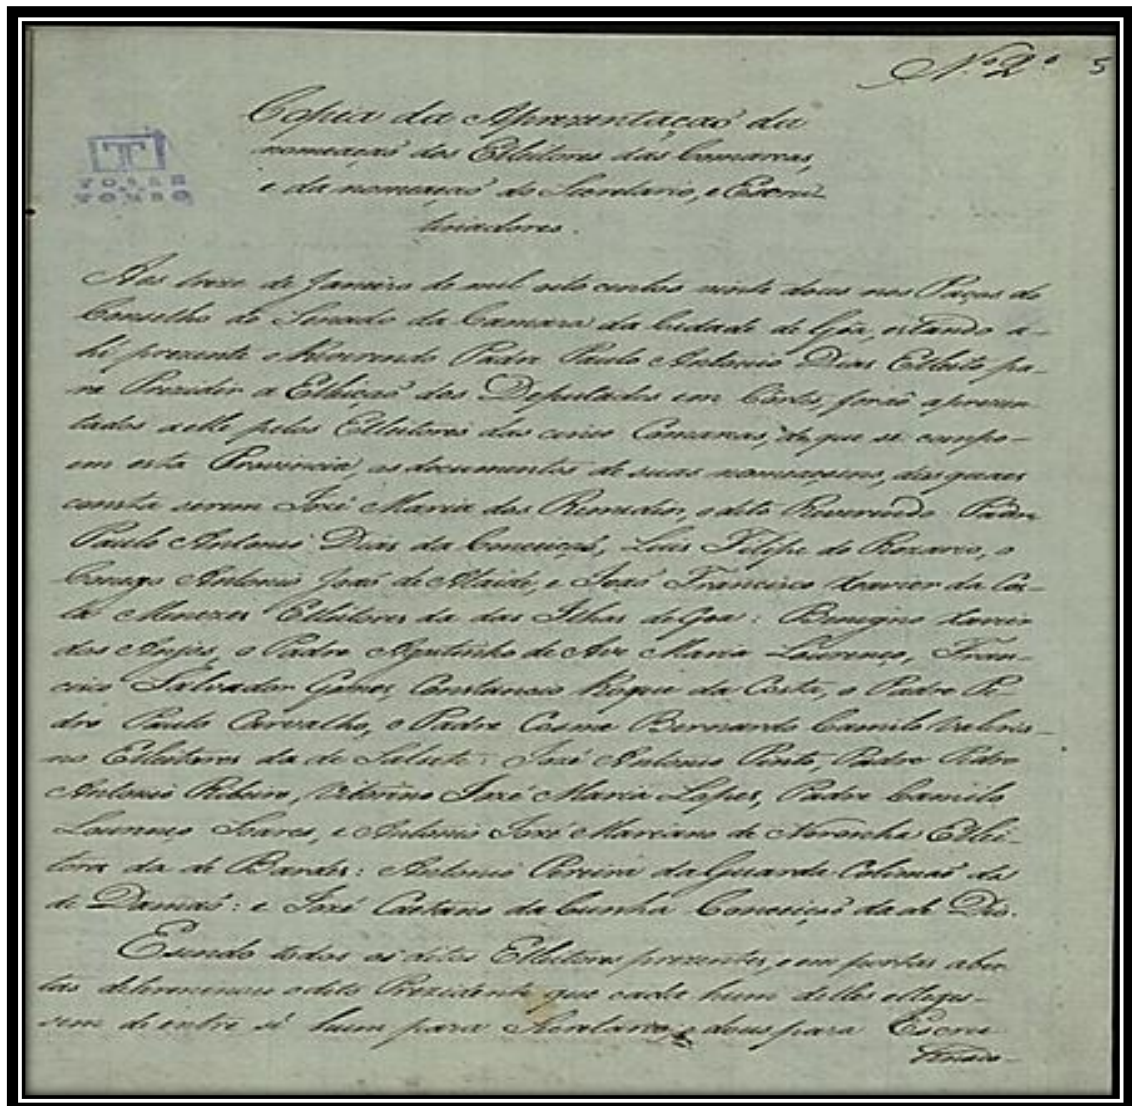 Nº 2º 5
T
TORRE
TOMBO
Copia da Aprezentaçaõ da
nomeaçaõ dos Elleitores das Comarcas,
e da nomeaçaõ do Secretario, e Escru-
tinadores.
Aos treze de Janeiro de mil oito centos vinte dous nos Paços do
Conselho do Senado da Camara da Cidade de Goa, estando a-
hi prezente o Reverendo Padre Paulo Antonio Dias Elleito pa-
ra Prezidir a Elleiçaõ dos Deputados em Côrtes, foraõ aprezen-
tados a elle pelos Elleitores das cinco Comarcas, de que se compo-
em esta Provincia, os documentos de suas nomeaçoens, dos quaes
consta serem José Maria dos Remedios, o dito Reverendo Padre
Paulo Antonio Dias da Conceiçaõ, Luis Filipe do Rozario, o
Conego Antonio Joaõ de Ataide, e Joaõ Francisco Xavier da Cos-
ta Menezes Elleitores da das Ilhas de Goa: Benigno Xavier
dos Anjos, o Padre Agostinho de Ave Maria Lourenço, Fran-
cisco Salvador Gomes, Constancio Roque da Costa, o Padre Pe-
dro Paulo Carvalho, o Padre Cosme Bernardo Camilo Valeria-
no Elleitores da de Salsete: José Antonio Pinto, Padre Pedro
Antonio Ribeiro, Vitorino José Maria Lopes, Padre Camilo
Lourenço Soares, e Antonio José Marciano de Noronha Ellei-
tores da de Bardes: Antonio Pereira da Guarda da
de Damaõ: e José Caetano da Cunha Conceiçaõ da de Dio.
Estando todos os ditos Elleitores prezentes, e em portas aber-
tas determinou o dito Prezidente que cada hum delles elleges-
sem d'entre si hum para Secretario, e dous para Escru-
tinado-